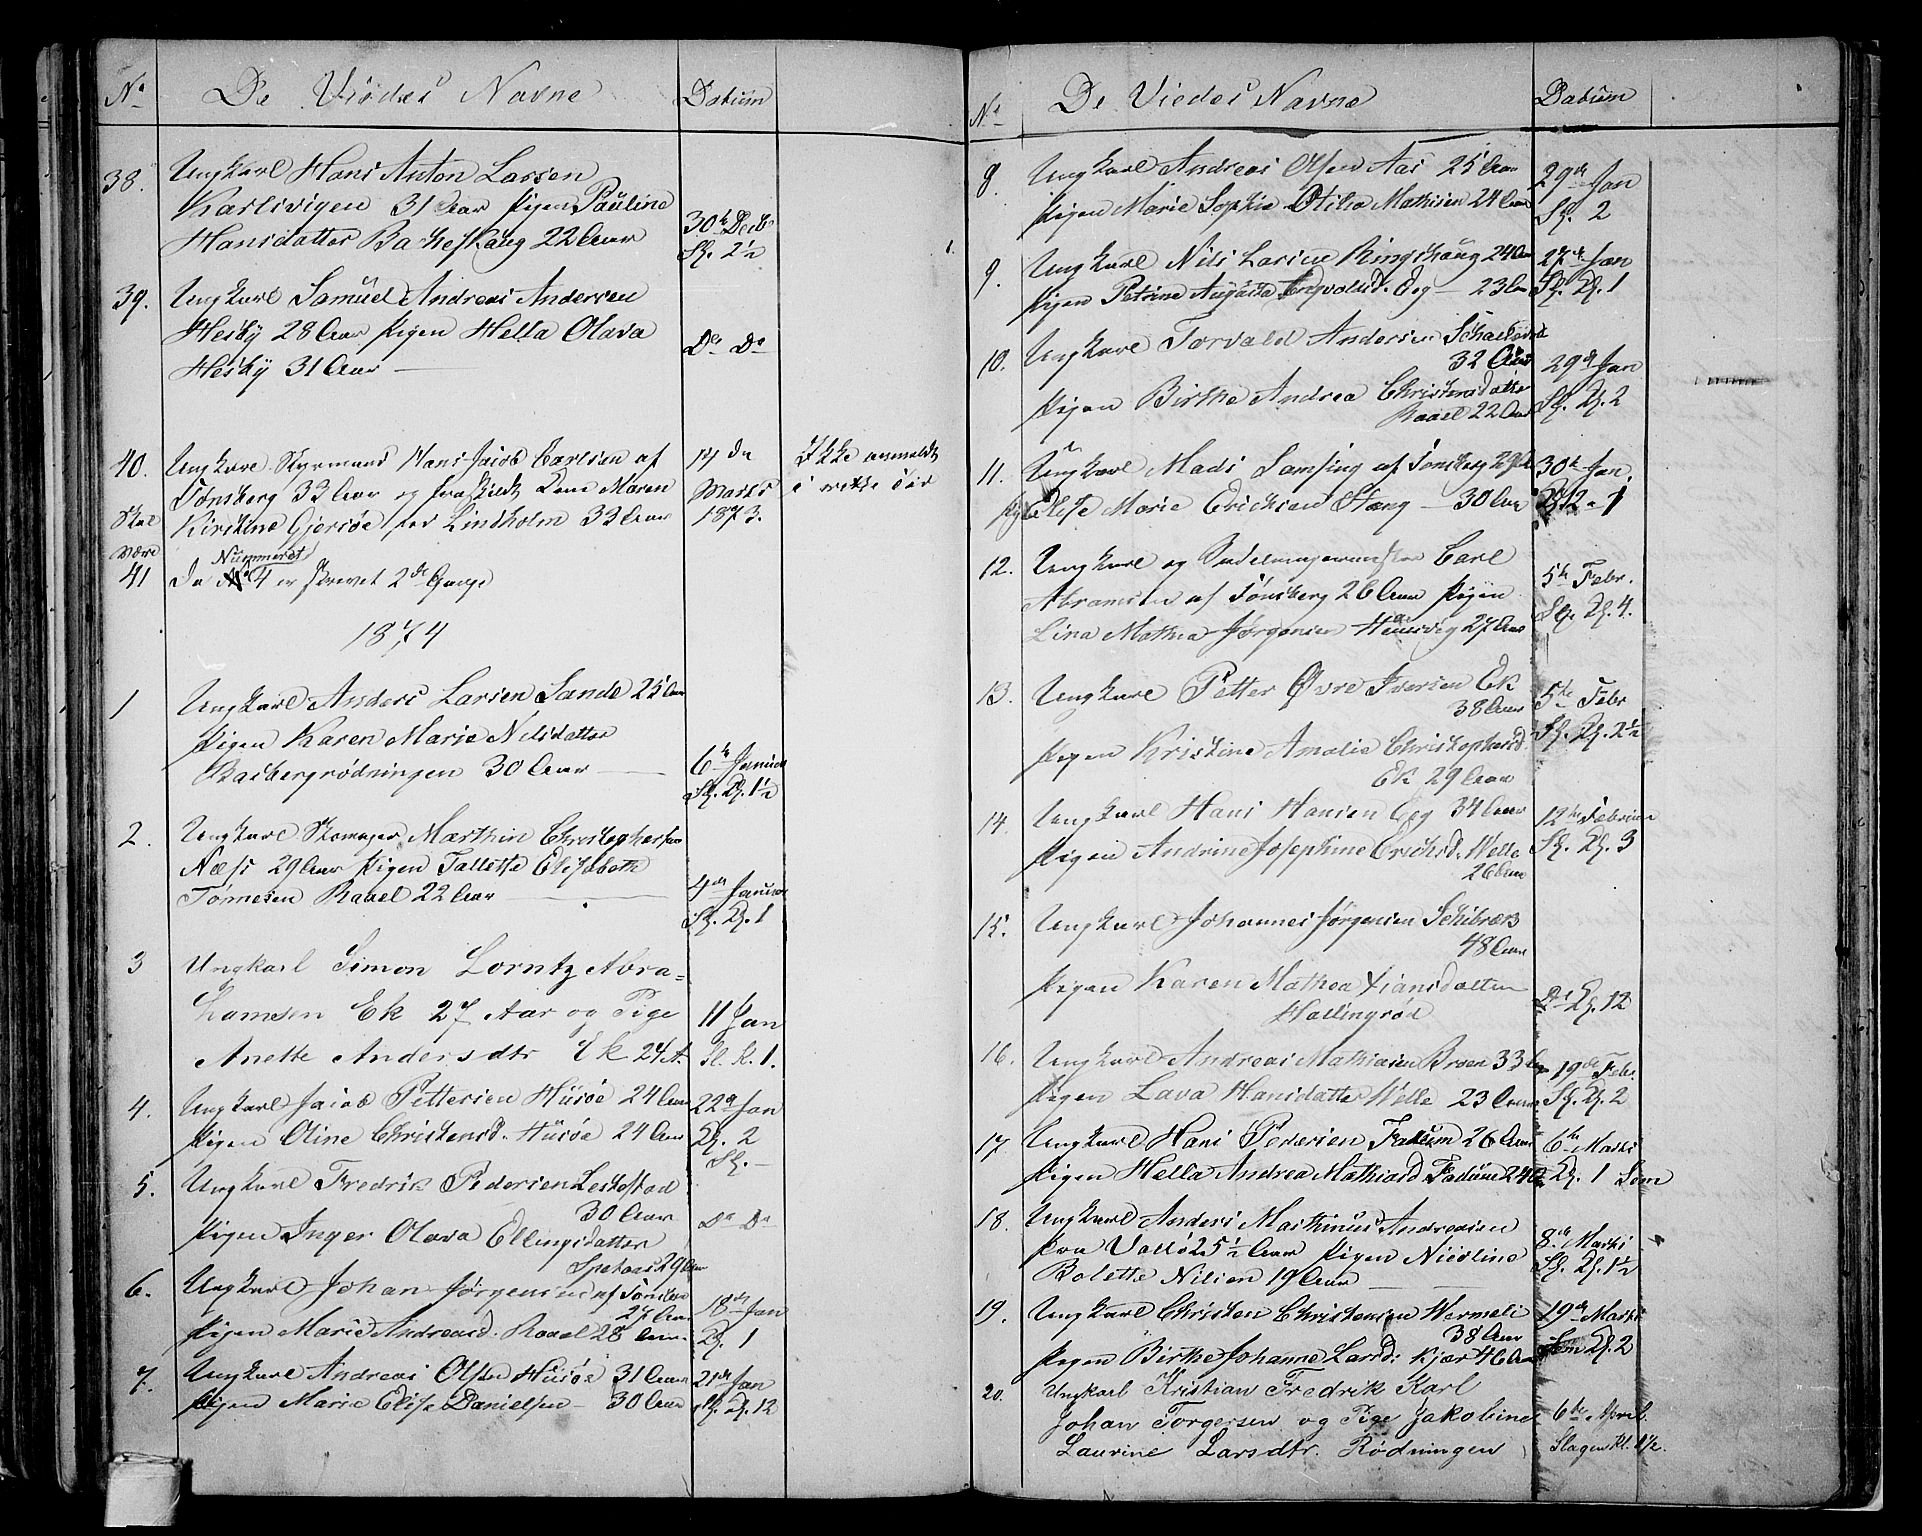 No De Viedes Navne Datum
38. Ungkarl Hans Anton Larsen
Karlsvigen 31 Aar Pigen Pauline
Hansdatter Bakeskaug 22 Aar 30te Decb
Kl. 2½
39. Ungkarl Samuel Andreas Andersen
Hesby 28 Aar Pigen Hella Olava
Hesby 31 Aar
Do Do
40. Ungkarl Styrmand Hans Jacob Carlsen af
Tønsberg 33 Aar og fraskildt Kone Maren
Kirstine Gjersøe før Lindholm 33 Aar
14 de
Marts
1873.
Ikke anmeldt
i rette Tid
Skal
være
41 da Nummeret 4 er skrevet 2de Gange
1874
1 Ungkarl Anders Larsen Sande 25 Aar
Pigen Karen Marie Nilsdatter
Basbergrødningen 30 Aar
6te Januar
Sl. K. 1½
2. Ungkarl Skomager Marthin Christophersen
Næss 29 Aar Pigen Tallette Elisabeth
Tønnesen Raael 22 Aar
4de Januar
Sl. K. 1
3 Ungkarl Simon Lorntz Abra-
hamsen Ek 27 Aar og Pige
Anette Andersdtr Ek 24 A.
11 Jan
Sl. K. 1.
4. Ungkarl Jacob Pettersen Husøe 24 Aar
Pigen Oline Christensd. Husøe 24 Aar
22de Jan
Kl. 2
Sl.
5. Ungkarl Fredrik Pedersen
30 Aar
Pigen Inger Olava Ellingsdatter
29 Aar
Do Do
6. Ungkarl Johan Jørgensen af Tønsberg
27 Aar
Pigen Marie Andreasd. Raael 28 Aar
18de Jan
Kl. 1
7. Ungkarl Andreas Olsen Husøe 31 Aar
Pigen Marie Elise Danielsen 30 Aar
21de Jan
Sl. Kl. 12
No De Viedes Navne Datum
8. Ungkarl Andreas Olsen Aas 25 Aar
Pigen Marie Sophie Otilia Mathisen 24 Aar
29de Jan
Sl. 2
9. Ungkarl Nils Larsen Ringshaug 24 Aar
Pigen Petrine Augusta Engvoldsd. Eeg 23 Aar
27de Jan
Sl. Kl. 1
10. Ungkarl Torvald Andersen
32 Aar
Pigen Birthe Andrea Christensdatter
Raael 22 Aar
29de Jan
Sl. Kl. 2
11. Ungkarl Mads Samsing af Tønsberg 29 Aar
Pig Elise Marie Ericksen Stang 30 Aar
30te Jan.
Kl 12-1
12. Ungkarl og Sadelmagermester Carl
Abramsen af Tønsberg 26 Aar Pigen
Lina Mathea Jørgensen Husvig 27 Aar
5te Febr.
Sl. Kl. 4.
13. Ungkarl Petter Øvre Iversen Ek
38 Aar
Pigen Kristine Amalie Christophersd
Ek 29 Aar
5te Febr
Sl. Kl. 2½
14. Ungkarl Hans Hansen Eeg 34 Aar
Pigen Andrine Josephine Erichsd. Velle
26 Aar
12te Februar
Sl. Kl. 3
15. Ungkarl Johannes Jørgensen
48 Aar
Pigen Karen Mathea Hansdatter
Hallingrød
Do Kl. 12
16. Ungkarl Andreas Mathiasen Broen 33 Aar
Pigen Lava Hansdatter Velle 23 Aar
19de Febr.
Sl. Kl. 2
17. Ungkarl Hans Pedersen Fadum 26 Aar
Pigen Hella Andrea Mathiasd. Fadum 24 Aar
6te Marts
Kl. 1 Sem
18. Ungkarl Anders Marthinus Andreasen
fra Vallø 25½ Aar Pigen Nicoline
Bolette Nilsen 19 Aar
8de Marts
Sl. Kl. 1½
19. Ungkarl Christen Christensen Vermeli
38 Aar
Pigen Birthe Johanne Larsd: Kjær 46 Aar
19de Marts
Sem Kl. 2
20. Ungkarl Kristian Fredrik Karl
Johan Torgersen og Pige Jakobine
Laurine Larsdtr. Rødningen
6te April.
Slagen Kl. 1½.